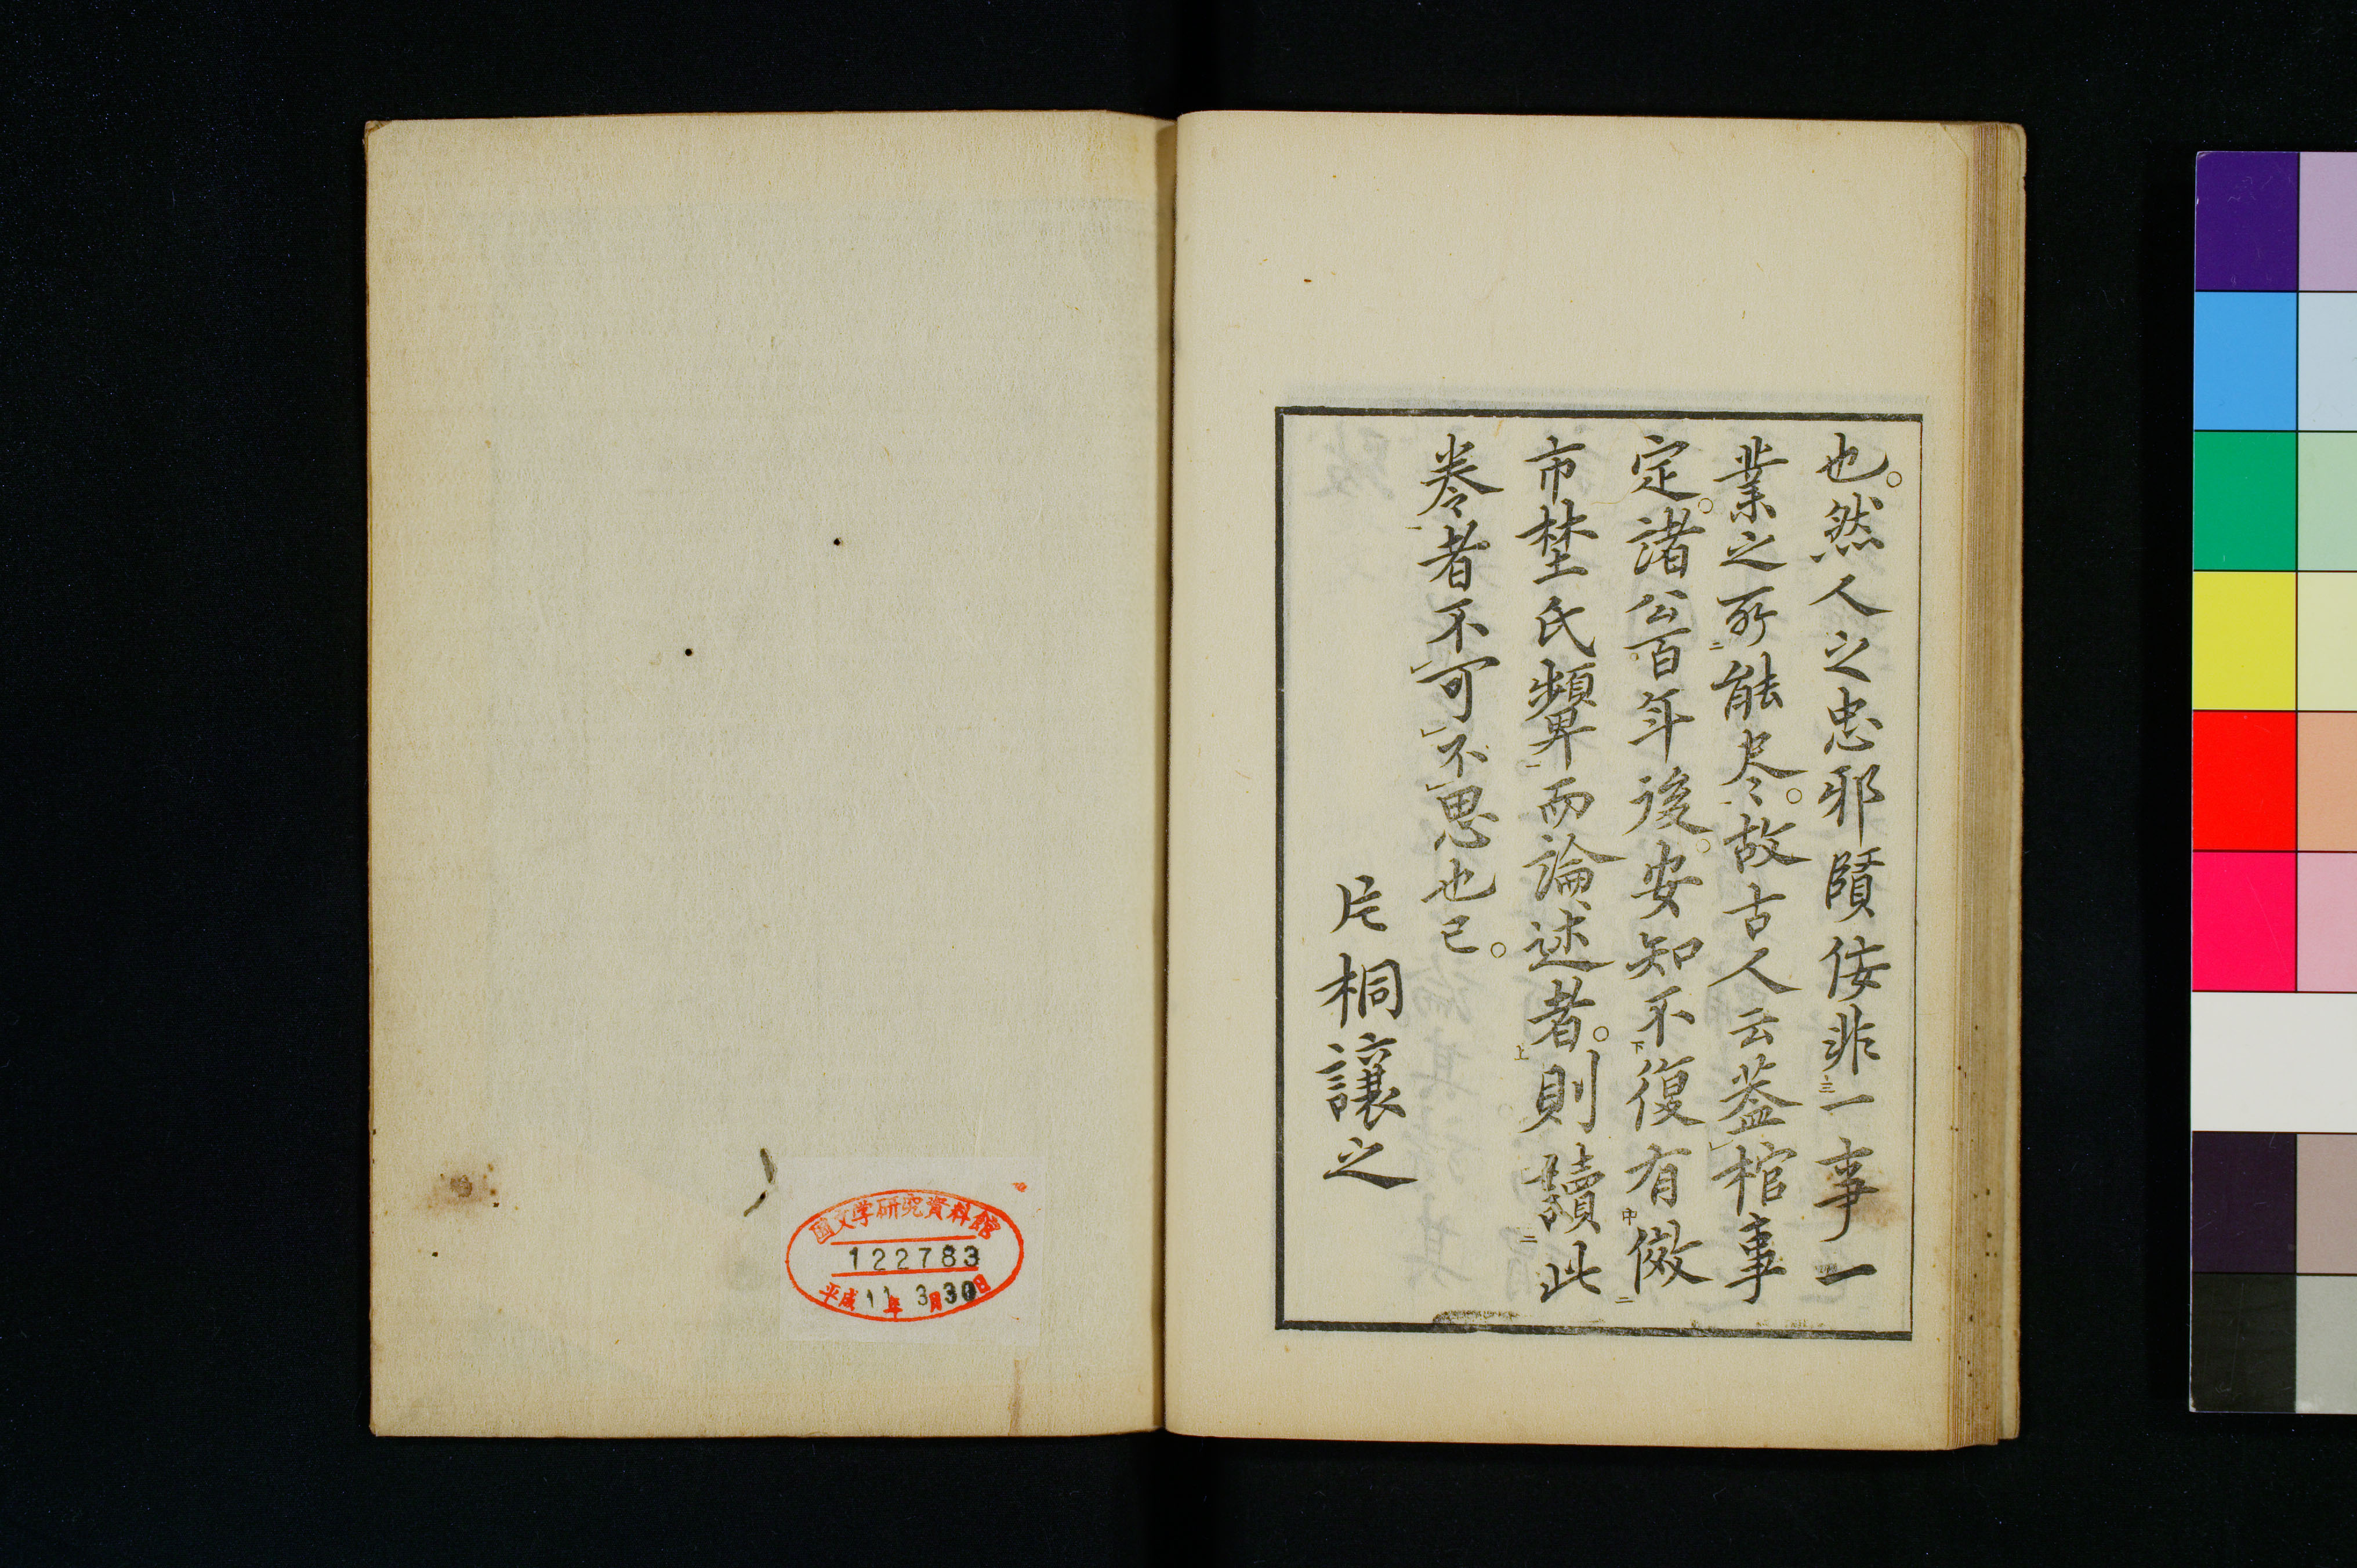 也。然人之忠邪賢佞非三一事一
業之所二能尽一。故古人云蓋レ棺事
定。諸公百年後。安知不下復有中倣二
市埜氏顰一。而論述者上。則讀二此
巻一者不レ可レ不レ思也已。
片桐讓之
国文学研究資料館
122783
平成11年3月30日